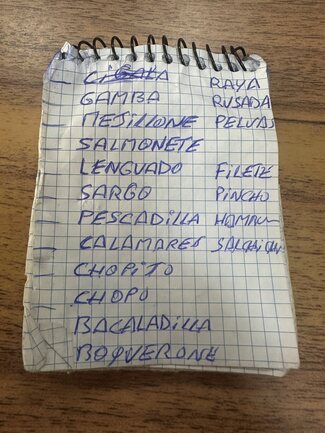 CIGALA RAYA
GAMBA RUSADA
MEJILLONE PELUAS
SALMONETE
LENGUADO FILETE
SARGO PINCHO
PESCADILLA
CALAMARES
CHOPITO
CHOPO
BACALADILLA
BOQVERONE